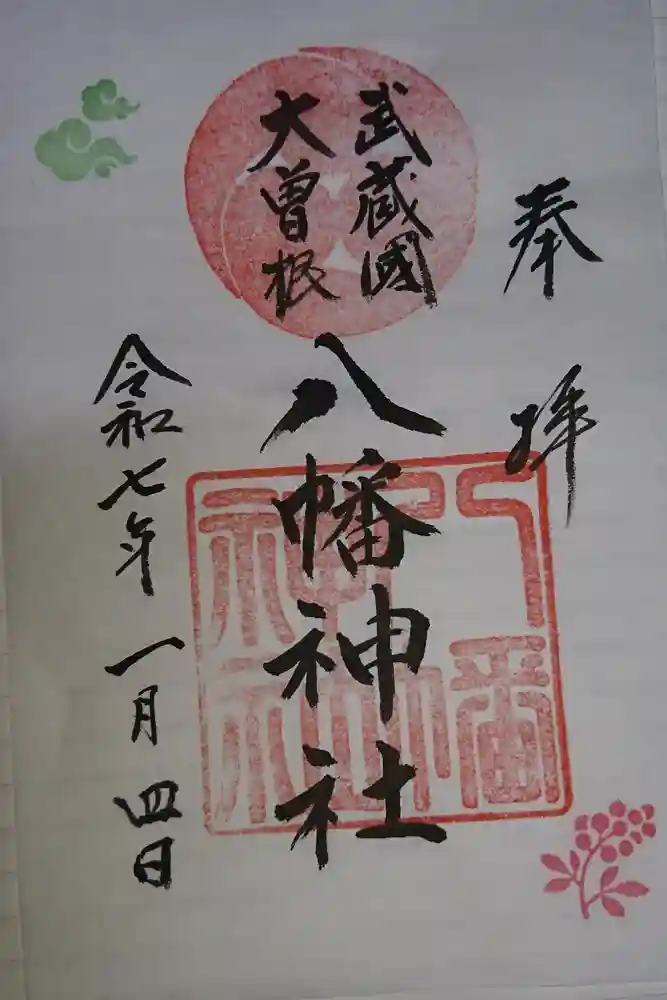 奉拝
武蔵國
大曽根
八幡神社
八幡
神社
令和七年一月四日